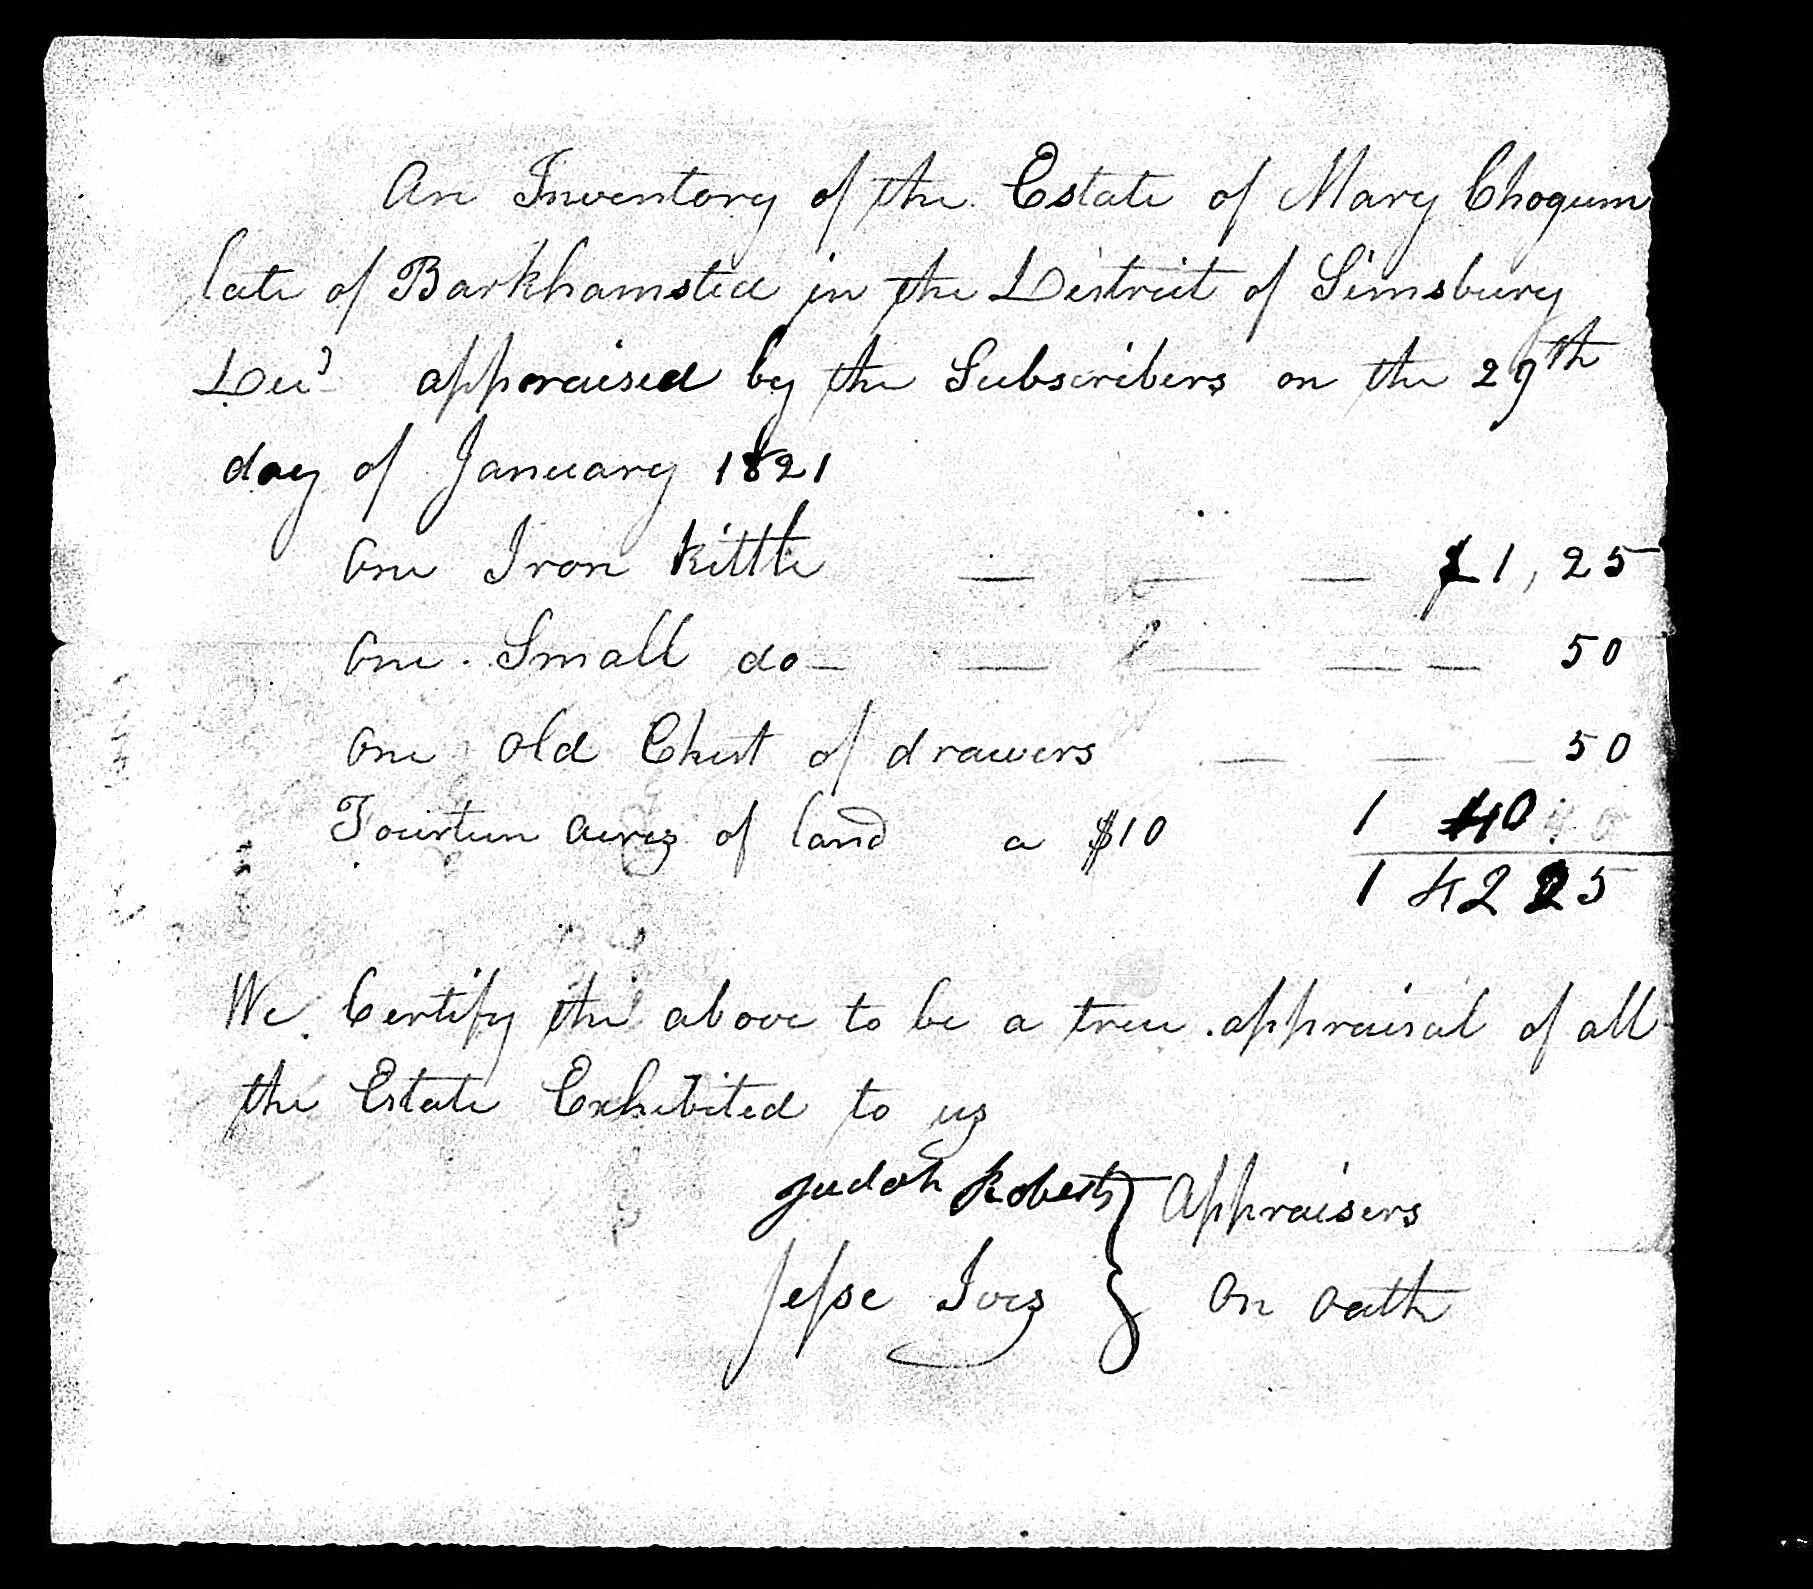 An Inventory of the Estate of Mary Chogum
late of Barkhamsted in the District of Simsbury
Decd appraised by the Subscribers on the 29th
day of January 1821
One Iron kittle — — — $1,25
One Small do — — — — — 50
One old Chest of drawers — — — 50
Fourteen acres of land a $10 140
142 25
We Certify the above to be a true appraisal of all
the Estate Exhibited to us
Judah Roberts } Appraisers
Jesse Ives } On oath